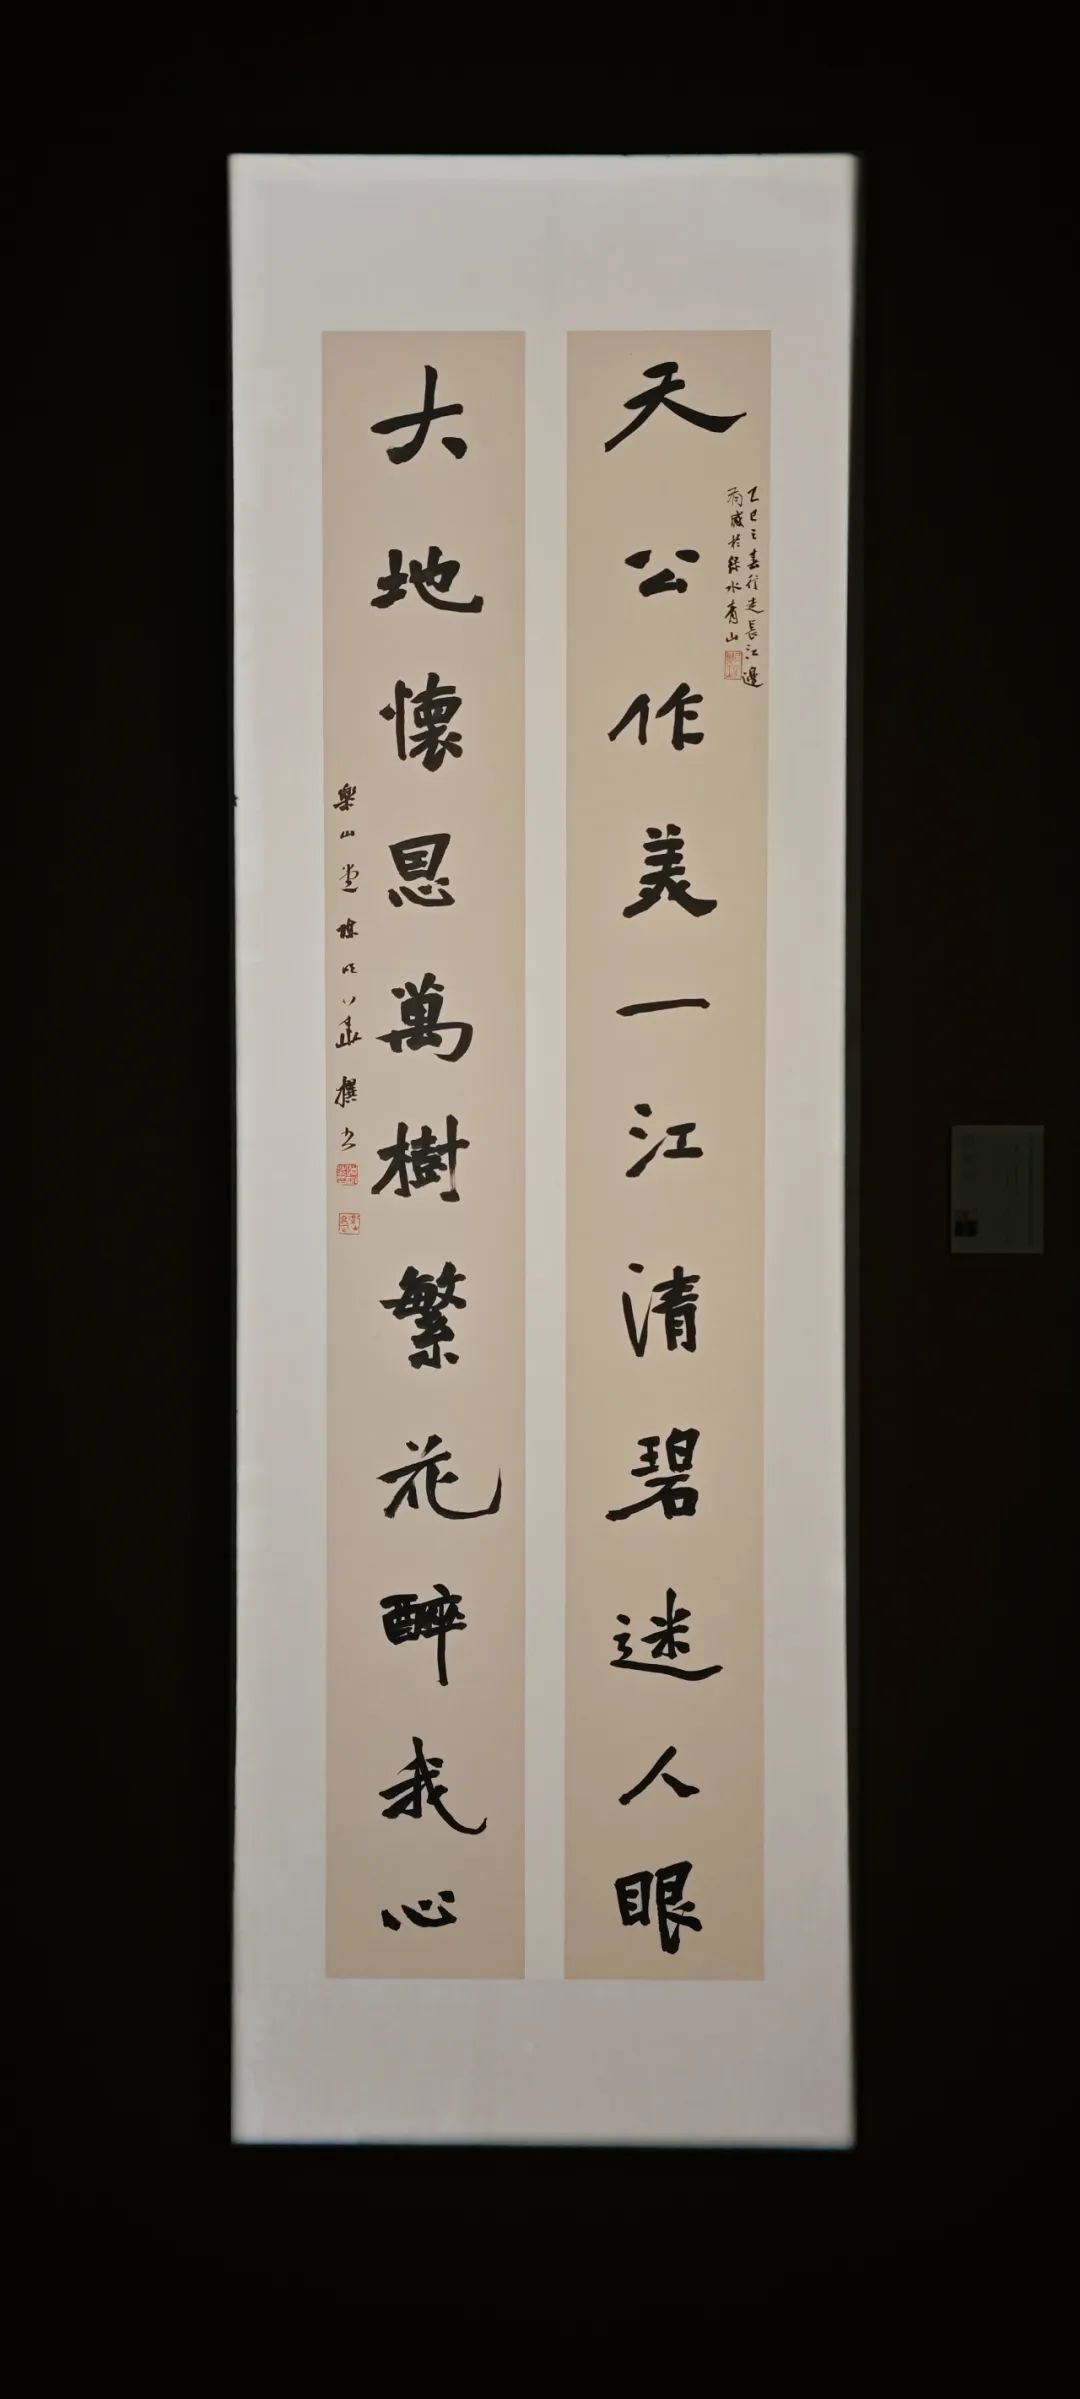 天公作美一江清碧迷人眼
乙巳之春行走長江邊
有感於綠水青山
大地懷恩萬樹繁花醉我心
樂山堂 撰書